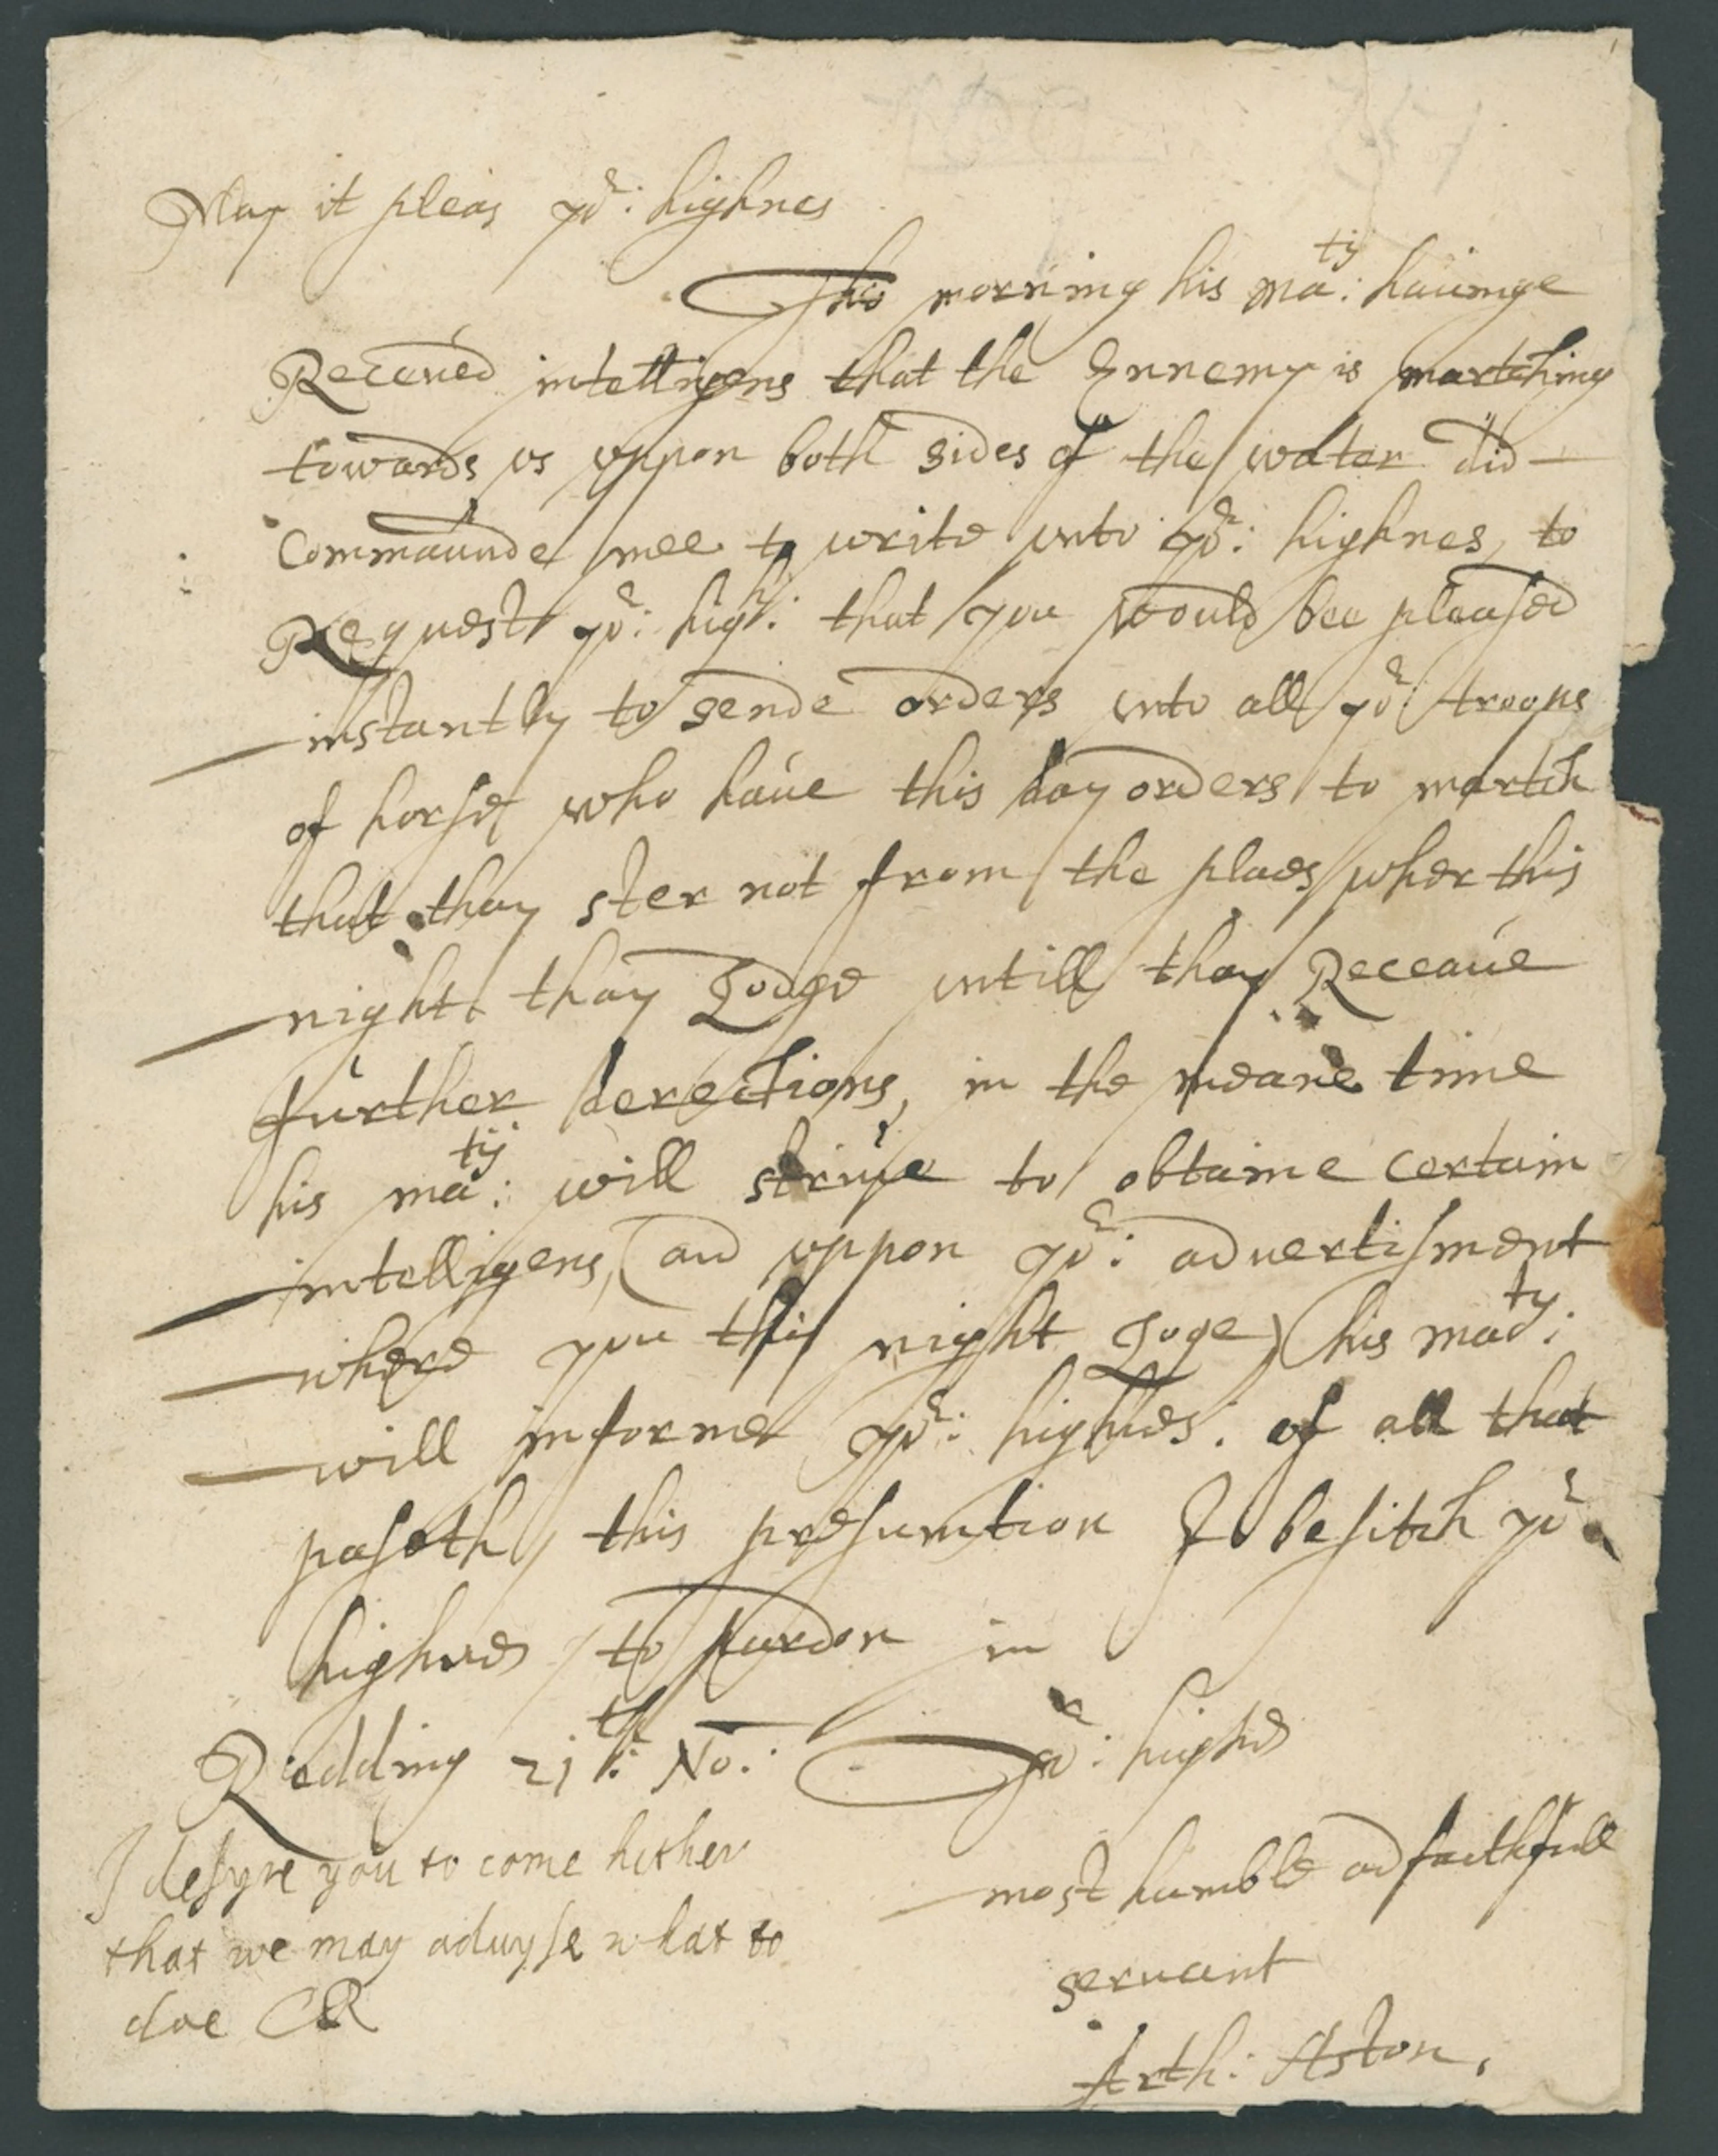 May it pleas yor: highnes
This morning his maty: hauinge
Receaued intelligens that the Ennemy is martching
towards vs vppon both sides of the water did
Commaunde mee to write vnto yor: highnes, to
Request yor: high: that you would bee pleased
instantly to sende orders vnto all yor: troops
of horse who haue this day orders to martch
that thay ster not from the places wher this
night thay Lodge vntill thay Receaue
further derections, in the meane time
his matij: will striue to obtaine certain
intelligens, (and vppon yor: advertisment
where you this night Loge) his maty:
will informe yor: highnes: of all that
paseth, this presumtion I besitch yor
highnes to pardon in
Redding 21th: No: yor: highnes
most humble and faithfull
seruant
Arth: Aston,
I desyre you to come hither
that we may aduyse what to
doe CR